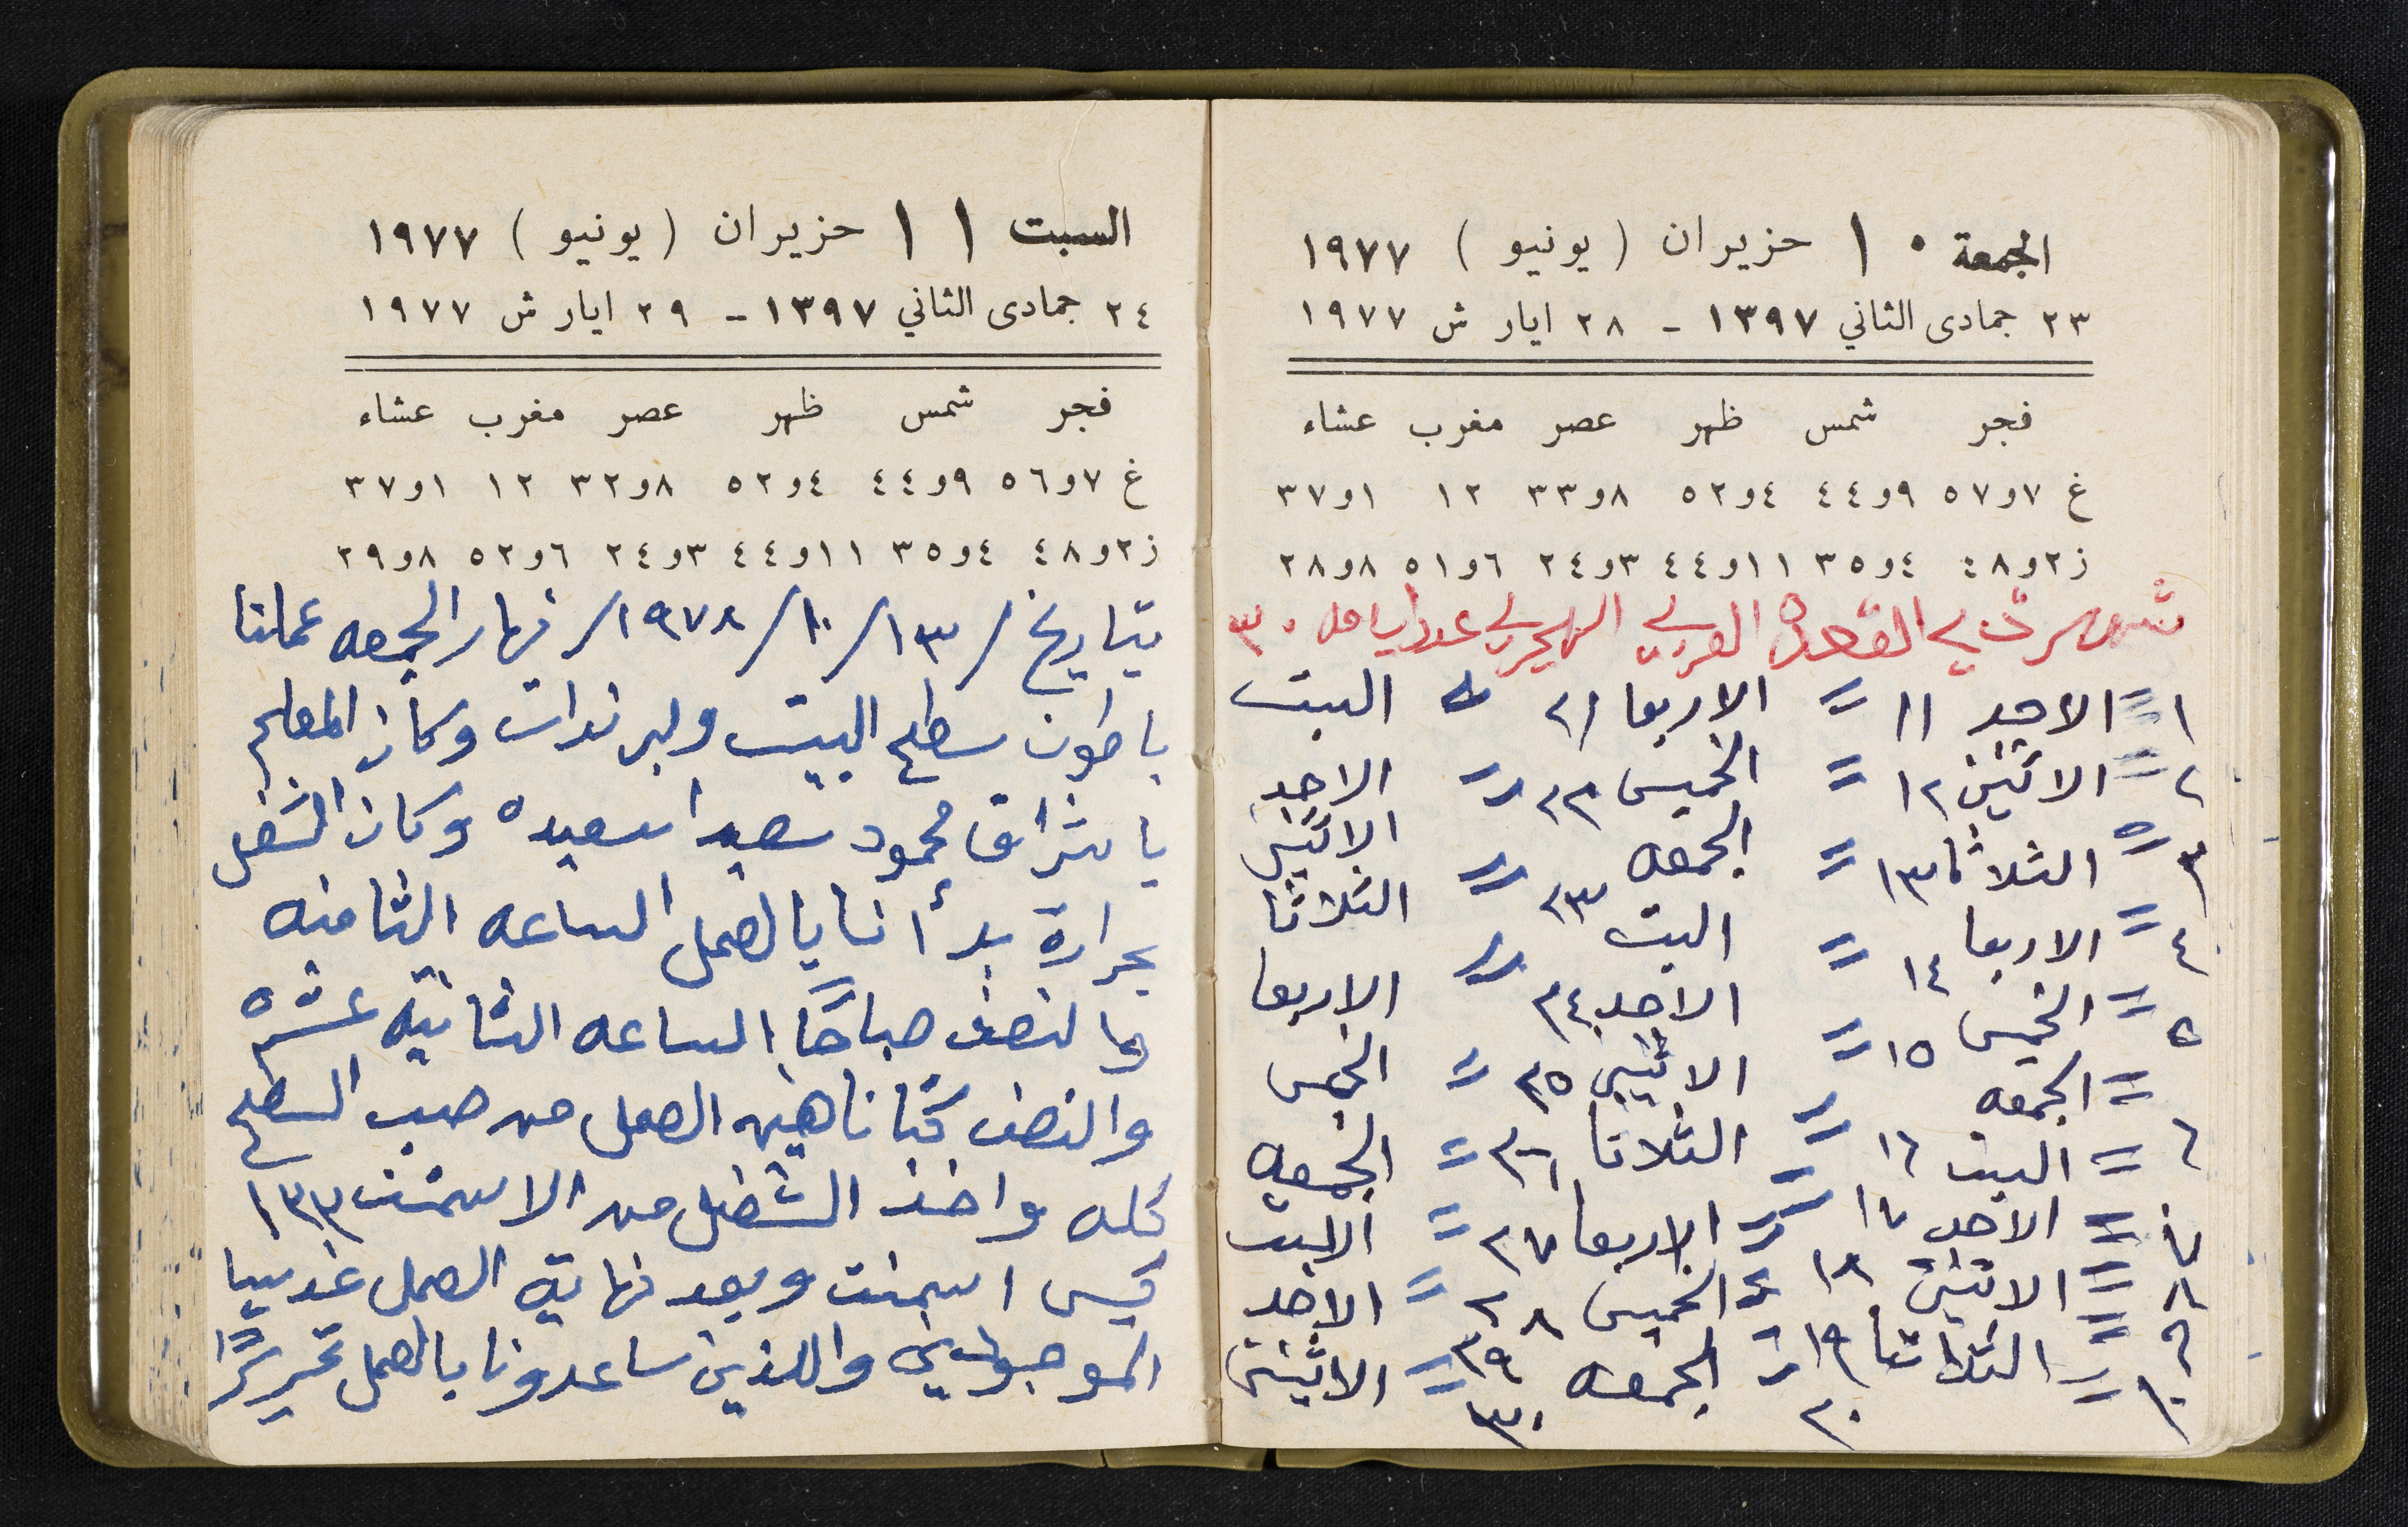 الجمعة ١٠ حزيران (يونيو) ١٩٧٧
٢٣ جمادى الثاني ١٣٩٧ - ٢٨ ايار ش ١٩٧٧
فجر شمس ظهر عصر مغرب عشاء
غ ٧و٥٧ ٩و٤٤ ٤و٥٢ ٨و٣٣ ١٢ ١و٣٧
ز ٢و٤٨ ٤و٣٥ ١١و٤٤ ٣و٢٤ ٦و٥١ ٨و٢٨
شهر ذي القعده العربي الهجري عدد ايامه ٣٠
١ = الاحد ١١ = الاربعا ٢١ = السبت
٢ = الاثنين ١٢ = الخميس ٢٢ = الاحد
٣ = الثلاثا ١٣ = الجمعه ٢٣ = الاثنين
٤ = الاربعا ١٤ = السبت ٢٤ = الثلاثا
٥ = الخميس ١٥ = الاحد ٢٥ = الاربعا
٦ = الجمعه ١٦ = الاثنين ٢٦ = الخميس
٧ = السبت ١٧ = الثلاثا ٢٧ = الجمعه
٨ = الاحد ١٨ = الاربعا ٢٨ = السبت
٩ = الاثنين ١٩ = الخميس ٢٩ = الاحد
١٠ = الثلاثا ٢٠ = الجمعه ٣٠ = الاثنين
السبت ١١ حزيران (يونيو) ١٩٧٧
٢٤ جمادى الثاني ١٣٩٧ - ٢٩ ايار ش ١٩٧٧
فجر شمس ظهر عصر مغرب عشاء
غ ٧و٥٦ ٩و٤٤ ٤و٥٢ ٨و٣٢ ١٢ ١و٣٧
ز ٢و٤٨ ٤و٣٥ ١١و٤٤ ٣و٢٤ ٦و٥٢ ٨و٢٩
بتاريخ /١٣/١٠/١٩٧٨/ نهار الجمعه عملنا
باطون سطح البيت ولبرندات وكان المعلم
باشراق محمود سعيد اسعيده وكان الشغل
بجرارة بدأنا بالعمل الساعه الثامنه
والنصف صباحًا الساعه الثانيه عشره
والنصف كنا ناهين العمل من صب السطح
كله واخذ الشغل من الاسمنت ١٣٣
كيس اسمنت وبعد نهاية العمل غدينا
الموجودين واللذين ساعدونا بالعمل تحريرًا